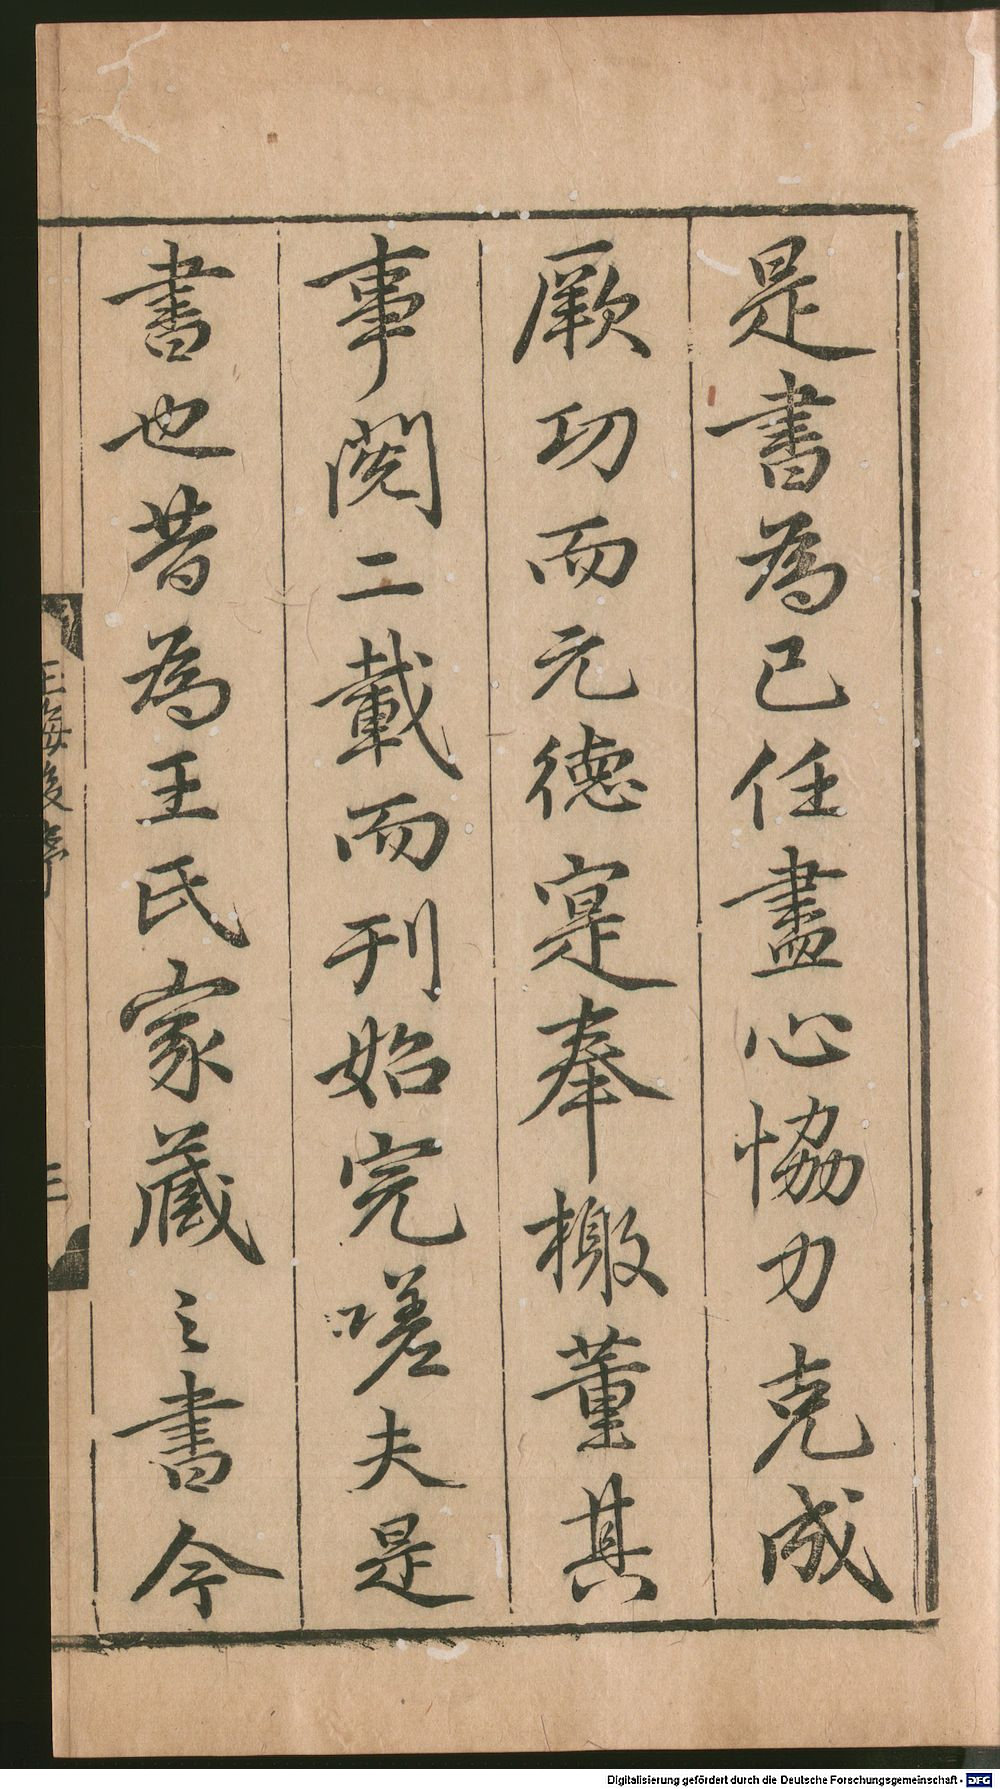 是書為己任盡心恊力克成
厥功而元德寔奉檄董其
事閱二載而刊始完嗟夫是
書也昔為王氏家蔵之書今
玉海後序
三
Digitalisierung gefördert durch die Deutsche Forschungsgemeinschaft - DFG